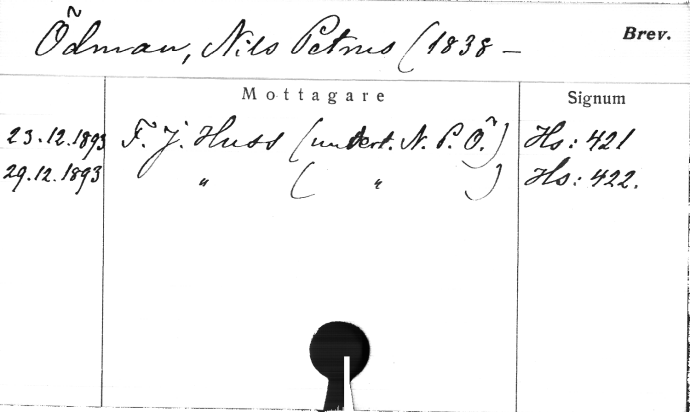 Ödman, Nils Petrus (1838 – Brev.
Mottagare Signum
23.12.1893 F. J. Huss (undert. N. P. Ö.) Hs: 421
29.12.1893 " ( " ) Hs: 422.